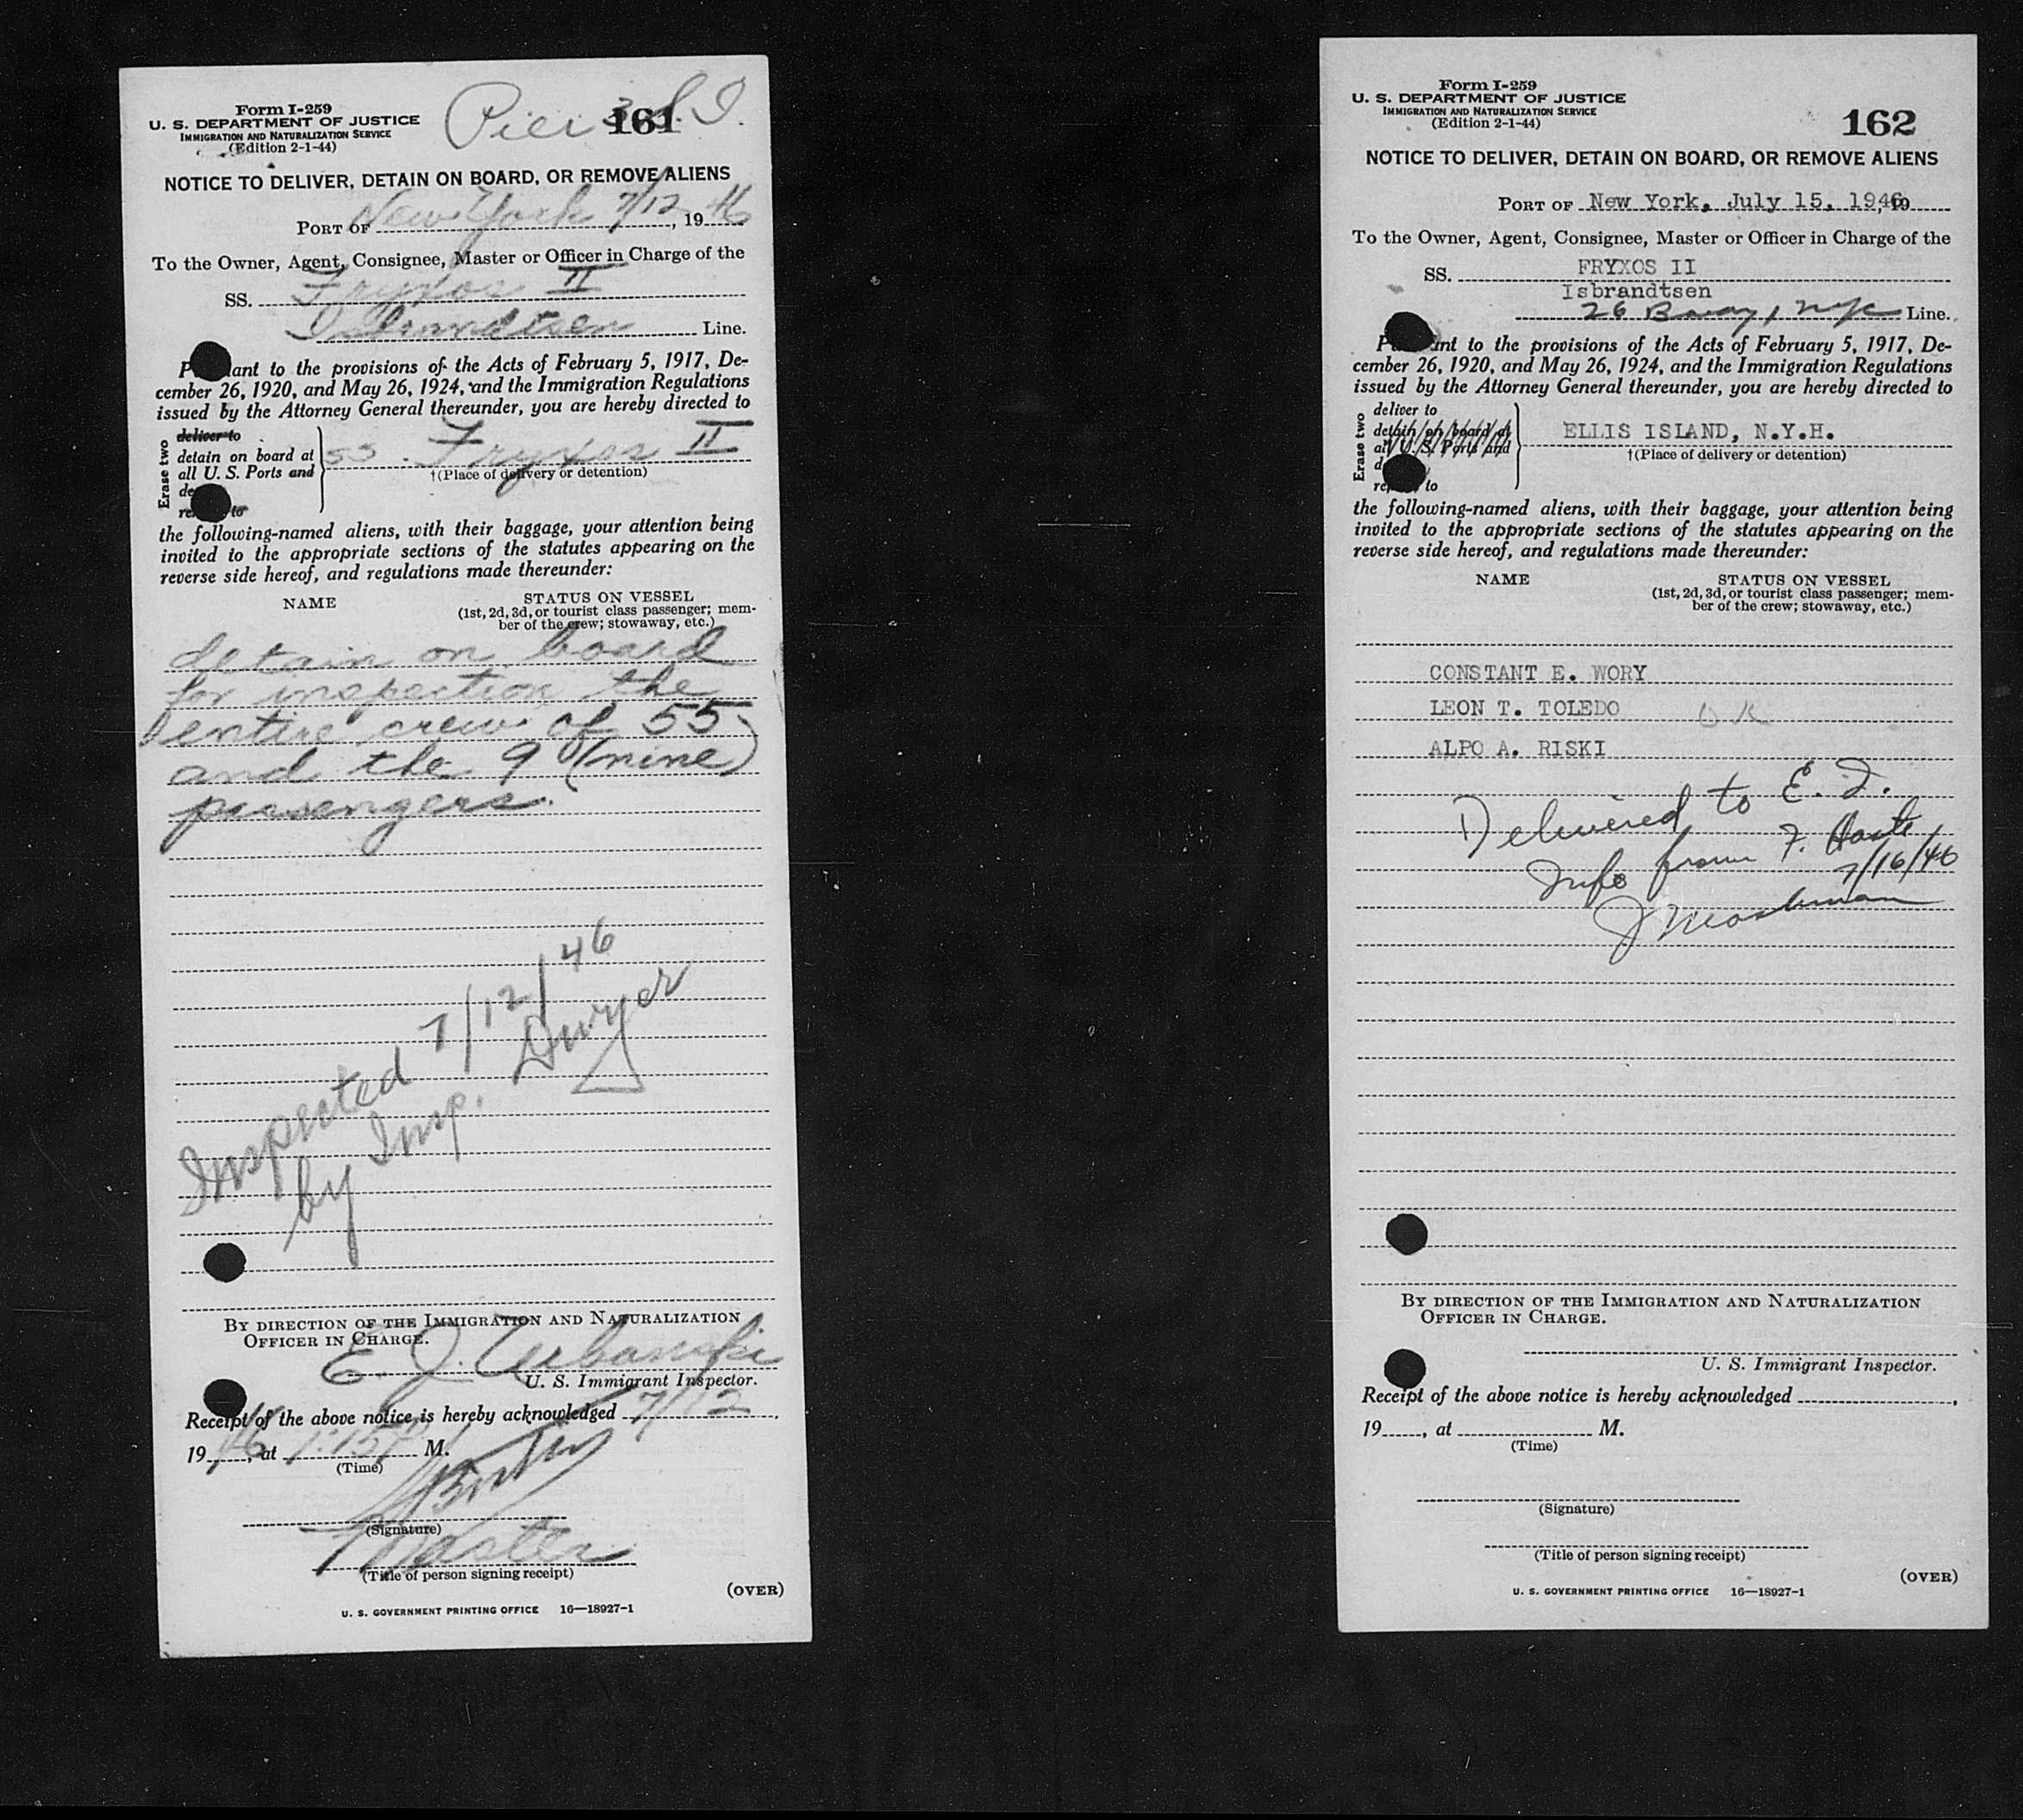 Form I-259
U. S. DEPARTMENT OF JUSTICE
IMMIGRATION AND NATURALIZATION SERVICE
(Edition 2-1-44)
Pier 3 S. I.
161
NOTICE TO DELIVER, DETAIN ON BOARD, OR REMOVE ALIENS
PORT OF New York 7/12, 1946
To the Owner, Agent, Consignee, Master or Officer in Charge of the
SS. Fryxos II
Isbrandtsen Line.
P ant to the provisions of the Acts of February 5, 1917, De-
cember 26, 1920, and May 26, 1924, and the Immigration Regulations
issued by the Attorney General thereunder, you are hereby directed to
Erase two
deliver to
detain on board at
all U. S. Ports and
de
re to
SS. Fryxos II
†(Place of delivery or detention)
the following-named aliens, with their baggage, your attention being
invited to the appropriate sections of the statutes appearing on the
reverse side hereof, and regulations made thereunder:
NAME
STATUS ON VESSEL
(1st, 2d, 3d, or tourist class passenger; mem-
ber of the crew; stowaway, etc.)
detain on board
for inspection the
entire crew of 55
and the 9 (nine)
passengers.
Inspected 7/12/46
by Insp. Dwyer
BY DIRECTION OF THE IMMIGRATION AND NATURALIZATION
OFFICER IN CHARGE.
E. J. Urbanski
U. S. Immigrant Inspector.
Receipt of the above notice is hereby acknowledged 7/12,
1946, at 1:15 P M.
(Time)
(Signature)
Master
(Title of person signing receipt)
(OVER)
U. S. GOVERNMENT PRINTING OFFICE 16—18927-1
Form I-259
U. S. DEPARTMENT OF JUSTICE
IMMIGRATION AND NATURALIZATION SERVICE
(Edition 2-1-44)
162
NOTICE TO DELIVER, DETAIN ON BOARD, OR REMOVE ALIENS
PORT OF New York, July 15, 1946, 19
To the Owner, Agent, Consignee, Master or Officer in Charge of the
SS. FRYXOS II
Isbrandtsen
26 Bway, NYC Line.
P ant to the provisions of the Acts of February 5, 1917, De-
cember 26, 1920, and May 26, 1924, and the Immigration Regulations
issued by the Attorney General thereunder, you are hereby directed to
Erase two
deliver to
detain on board at
all U. S. Ports and
d
re to
ELLIS ISLAND, N.Y.H.
†(Place of delivery or detention)
the following-named aliens, with their baggage, your attention being
invited to the appropriate sections of the statutes appearing on the
reverse side hereof, and regulations made thereunder:
NAME
STATUS ON VESSEL
(1st, 2d, 3d, or tourist class passenger; mem-
ber of the crew; stowaway, etc.)
CONSTANT E. WORY
LEON T. TOLEDO OK
ALPO A. RISKI
Delivered to E. I.
Info from F.
7/16/46
BY DIRECTION OF THE IMMIGRATION AND NATURALIZATION
OFFICER IN CHARGE.
U. S. Immigrant Inspector.
Receipt of the above notice is hereby acknowledged ,
19 , at M.
(Time)
(Signature)
(Title of person signing receipt)
(OVER)
U. S. GOVERNMENT PRINTING OFFICE 16—18927-1